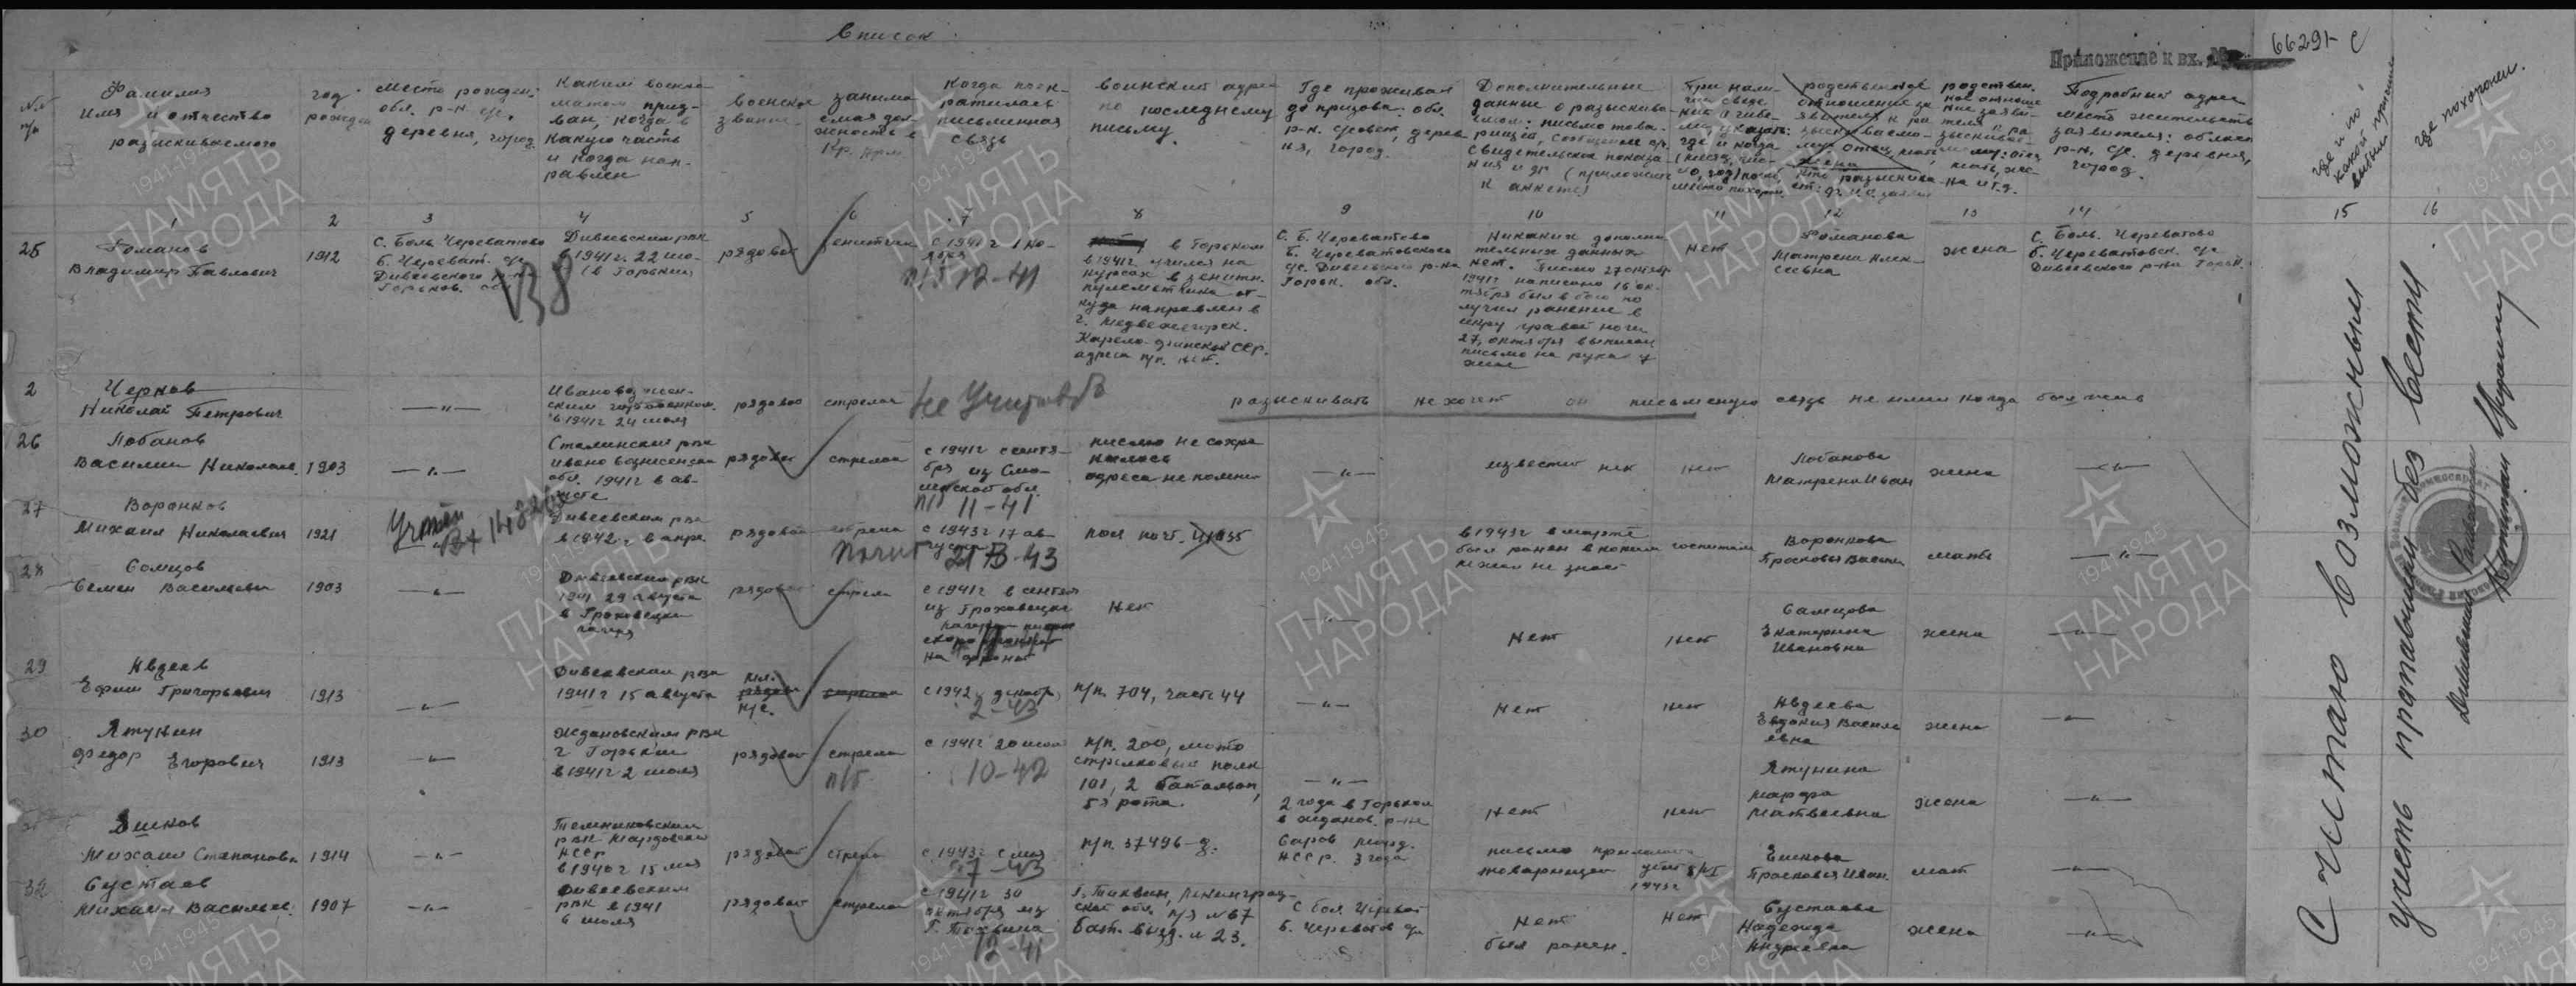 Список
Приложение к вх. №
66291 с
№№ п/п
Фамилия
имя и отчество
разыскиваемого
год
рожден
место рожден.
обл. р-н. с/с.
деревня, город.
Каким военко-
матом приз-
ван, когда в
какую часть
и когда нап-
равлен
воинское
звание
занима
емая дол-
жность в
Кр. Арм.
Когда прек-
ратилась
письменная
связь
воинский адрес
по последнему
письму.
Где проживал
до призыва: обл.
р-н. с/совет, дерев
ня, город.
Дополнительные
данные о разыскива-
емом: письмо това-
рищей, сообщение
свидетельские показа-
ния и др (приложен
к анкете)
При нали-
чии сведе
где и когда
родствен.
ное отноше
мать, же-
на и т.д.
Подробный адрес
место жительства
заявителя: область
р-н, с/с. деревня,
город.
где и по
какой причине
выбыл
где похоронен.
1 2 3 4 5 6 7 8 9 10 11 12 13 14 15 16
25
Романов
Владимир Павлович
1912
С. Боль Череватово
Б. Череват. с/с
Дивеевского р-на
Горьков. обл
Дивеевским рвк
в 1941 г. 22 ию-
(в Горький
рядовой
зенитчик
с 1941 г 1 но-
ября
п/б 12-41
в Горьком
в 1941 г учился на
курсах в зенитн.
пулеметчика от-
куда направлен в
г. Медвежегорск.
Карело-Финской ССР.
адреса п/п. нет.
С. Б. Череватово
Б. Череватовского
с/с. Дивеевского р-на
Горьк. обл.
Никаких дополни
тельных данных
нет. Письмо 27 октяб
1941 г написано 16 ок-
тября был в бою по
лучил ранение в
икру правой ноги
27, октября выписан
письмо на руках у
жены
нет
Романова
Матрена Алек-
сеевна
жена
С. Боль. Череватово
Б. Череватовск. с/с
Дивеевского р-на Горьк.
2
Чернов
Николай Петрович
—"—
в 1941 г 24 июля
рядовой
стрелок
Не Учитывать
разыскивать не хочет он письменную связь не имел когда был жив
26
Лобанов
Василий Николаев.
1903
—"—
Сталинским рвк
Ивановознесенска
обл. 1941 г в ав-
густе
рядовой
стрелок
с 1941 г сентя-
бря из Смо-
ленской обл.
п/б 11-41
письмо не сохра
нилось
адреса не помнит
—"—
известий нет
нет
Лобанова
Матрена Иван
жена
—"—
27
Воронков
Михаил Николаевич
1921
Учтён
Дивеевским рвк
в 1942 г в апре
рядовой
с 1943 г 17 ав-
густа
пол. поч.
в 1943 г в марте
был ранен в каком госпитале
лежал не знает
Воронкова
Просковья Василь
мать
—"—
28
Самцов
Семен Васильевич
1903
—"—
Дивеевским рвк
1941 29 августа
в Гроховецки
лагеря
рядовой
стрелок
с 1941 г в сентяб
из Гроховецких
на фронт
нет
—"—
нет
нет
Самцова
Екатерина
Ивановна
жена
—"—
29
Авдеев
Ефим Григорьевич
1913
—"—
Дивеевским рвк
1941 г 15 августа
мл.
к/с.
с 1942 г декабр
2-43
п/п. 704, часть 44
—"—
нет
нет
Авдеева
Евдокия Василь
евна
жена
—"—
30
Ятунин
Федор Егорович
1913
—"—
Ждановским рвк
г Горький
в 1941 г 2 июля
рядовой
стрелок
п/б
с 1941 г 20 июля
10-42
п/п. 200, мото
стрелковый полк
101, 2 батальон,
5я рота.
—"—
2 года в Горьком
в Жданов. р-не
нет
нет
Ятунина
Марфа
Матвеевна
жена
—"—
31
Ешков
Михаил Степанович
1914
—"—
Темниковским
рвк Мордовской
АССР
в 1940 г 15 мая
рядовой
стрелок
с 1943 г с мая
7-43
п/п. 37496-д.
Саров морд.
АССР. 3 года
письмо прислали
товарищей
1943 г
Ешкова
Просковья Иван.
мать
—"—
32
Сустаев
Михаил Васильев.
1907
—"—
Дивеевским
рвк в 1941
6 июля
рядовой
стрелок
с 1941 г 30
октября из
г. Тихвина
12-41
г. Тихвин, Ленинград-
ской обл. п/я №67
бат. выдз. № 23.
С бол. Череват
б. Череватов с/с
нет
был ранен.
нет
Сустаева
Надежда
Андреевна
жена
—"—
Считаю возможным
учесть пропавшим без вести